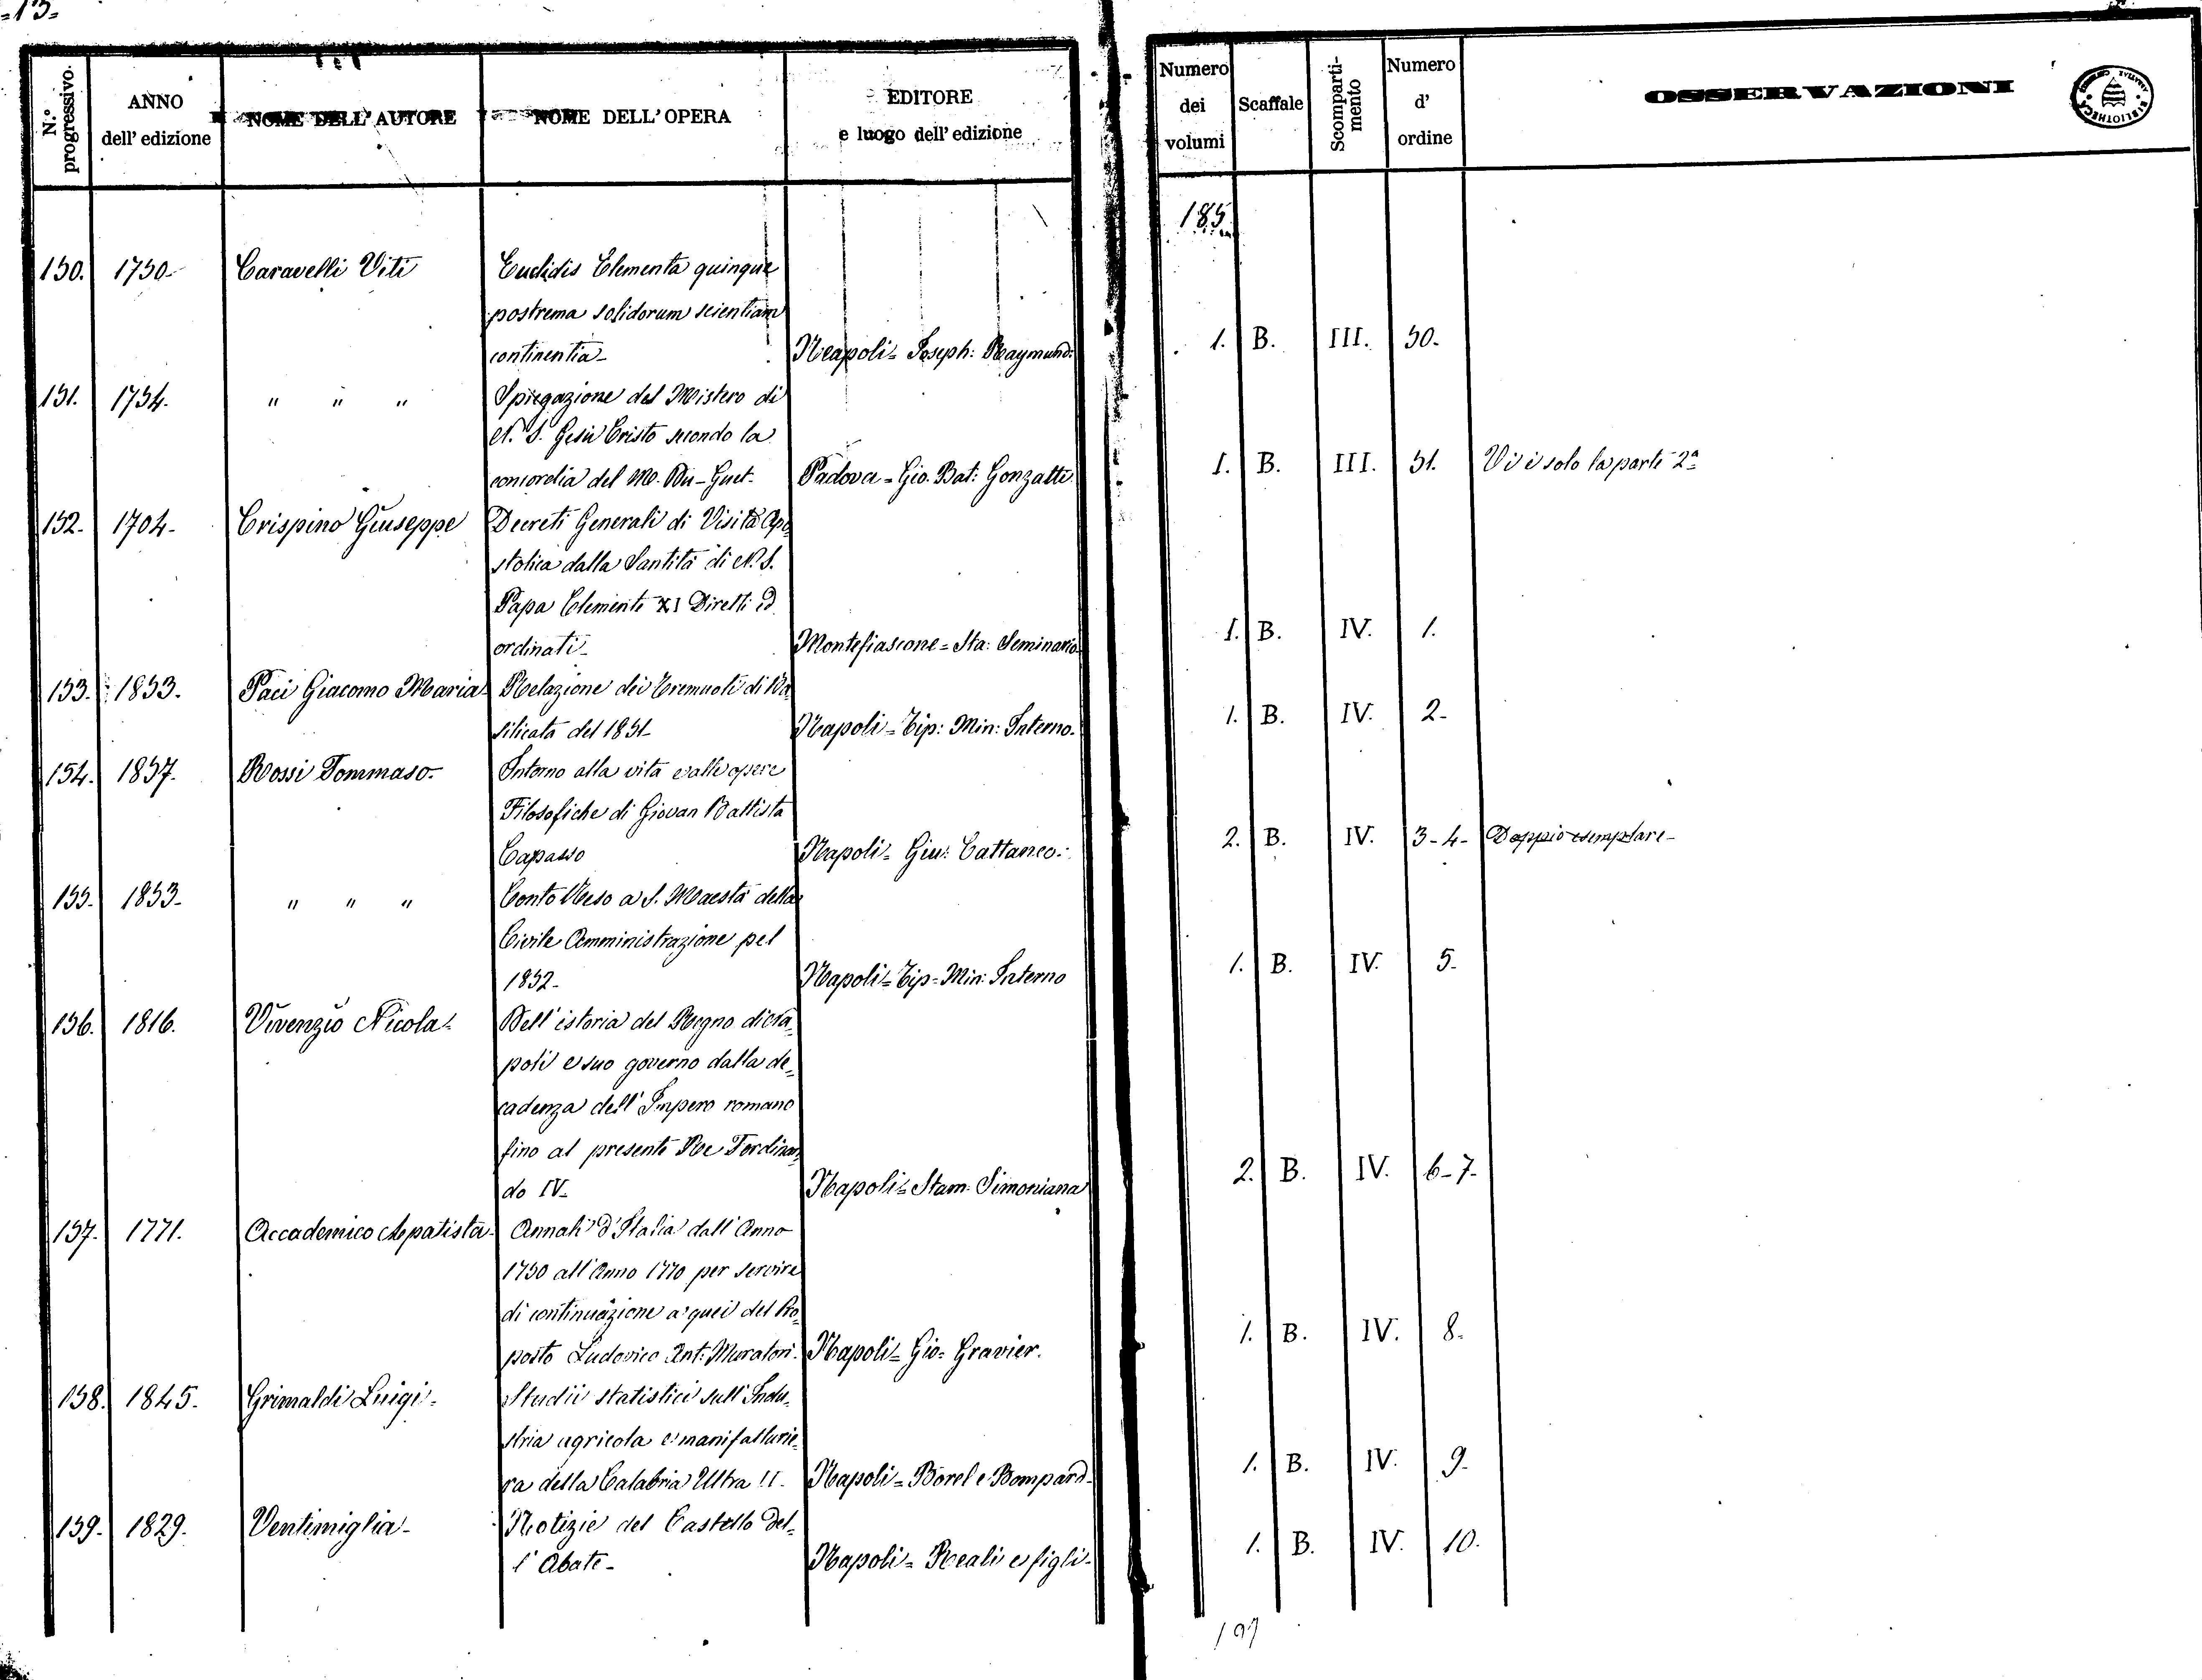 =15=
N.° progressivo.
ANNO dell' edizione
NOME DELL'AUTORE
NOME DELL'OPERA
EDITORE e luogo dell' edizione
Numero dei volumi
Scaffale
Scomparti-mento
Numero d' ordine
OSSERVAZIONI
185
150. 1750- Caravelli Viti Euclidis Elementa quinque
postrema solidorum scientiam
continentia- Neapoli= Joseph: Raymund: 1. B. III. 50-
151. 1754. " " " Spiegazione del Mistero di
N. S. Gesù Cristo secondo la
concordia del M. Du-Guet- Padova= Gio. Bat: Gonzatti 1. B. III. 51. Vi è solo la parte 2ª
152- 1704- Crispino Giuseppe Decreti Generali di Visita Apo-
stolica dalla Santità di N. S.
Papa Clemente XI Diretti ed
ordinati- Montefiascone= Sta: Seminario 1. B. IV. 1.
153- 1853. Paci Giacomo Maria- Relazione dei Tremuoti di Ba-
silicata del 1851- Napoli= Tip: Min: Interno. 1. B. IV. 2-
154. 1857. Rossi Tommaso- Intorno alla vita e alle opere
Filosofiche di Giovan Battista
Capasso Napoli= Giu: Cattaneo: 2. B. IV. 3-4- Doppio esemplare-
155- 1853- " " " Conto Reso a S. Maestà della
Civile Amministrazione pel
1852- Napoli= Tip= Min: Interno 1. B. IV. 5-
156. 1816. Vivenzio Nicola- Dell' istoria del Regno di Na-
poli e suo governo dalla de-
cadenza dell' Impero romano
fino al presente Re Ferdinan-
do IV- Napoli= Stam: Simoniana 2. B. IV. 6-7-
157- 1771. Accademico Apatista- Annali d'Italia dall' Anno
1750 all' Anno 1770 per servire
di continuazione a quei del Pro-
posto Ludovico Ant: Muratori- Napoli= Gio= Gravier. 1. B. IV. 8-
158. 1845- Grimaldi Luigi- Studii statistici sull' Indu-
stria agricola e manifatturie-
ra della Calabria Ultra II. Napoli= Borel e Bompard- 1. B. IV. 9-
159- 1829. Ventimiglia- Notizie del Castello del-
l' Abate- Napoli= Reali e figli- 1. B. IV. 10.
197